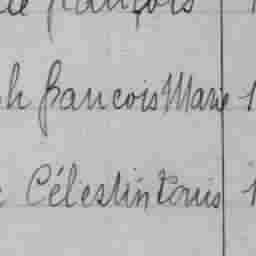 françois
h francois Marie 1
Célestin Louis 1